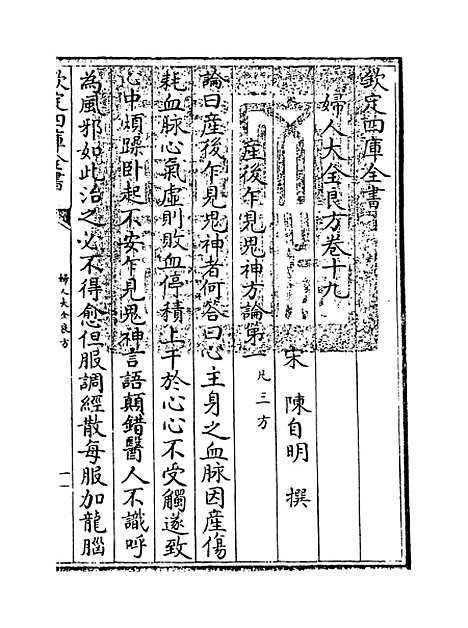 欽定四庫全書
婦人大全良方卷十九
宋 陳自明 撰
產後乍見鬼神方論第一 凡三方
論曰產後乍見鬼神者何答曰心主身之血脉因產傷
耗血脉心氣虛則敗血停積上干於心心不受觸遂致
心中煩躁卧起不安乍見鬼神言語顛錯醫人不識呼
為風邪如此治之必不得愈但服調經散每服加龍腦
欽定四庫全書
婦人大全良方
一